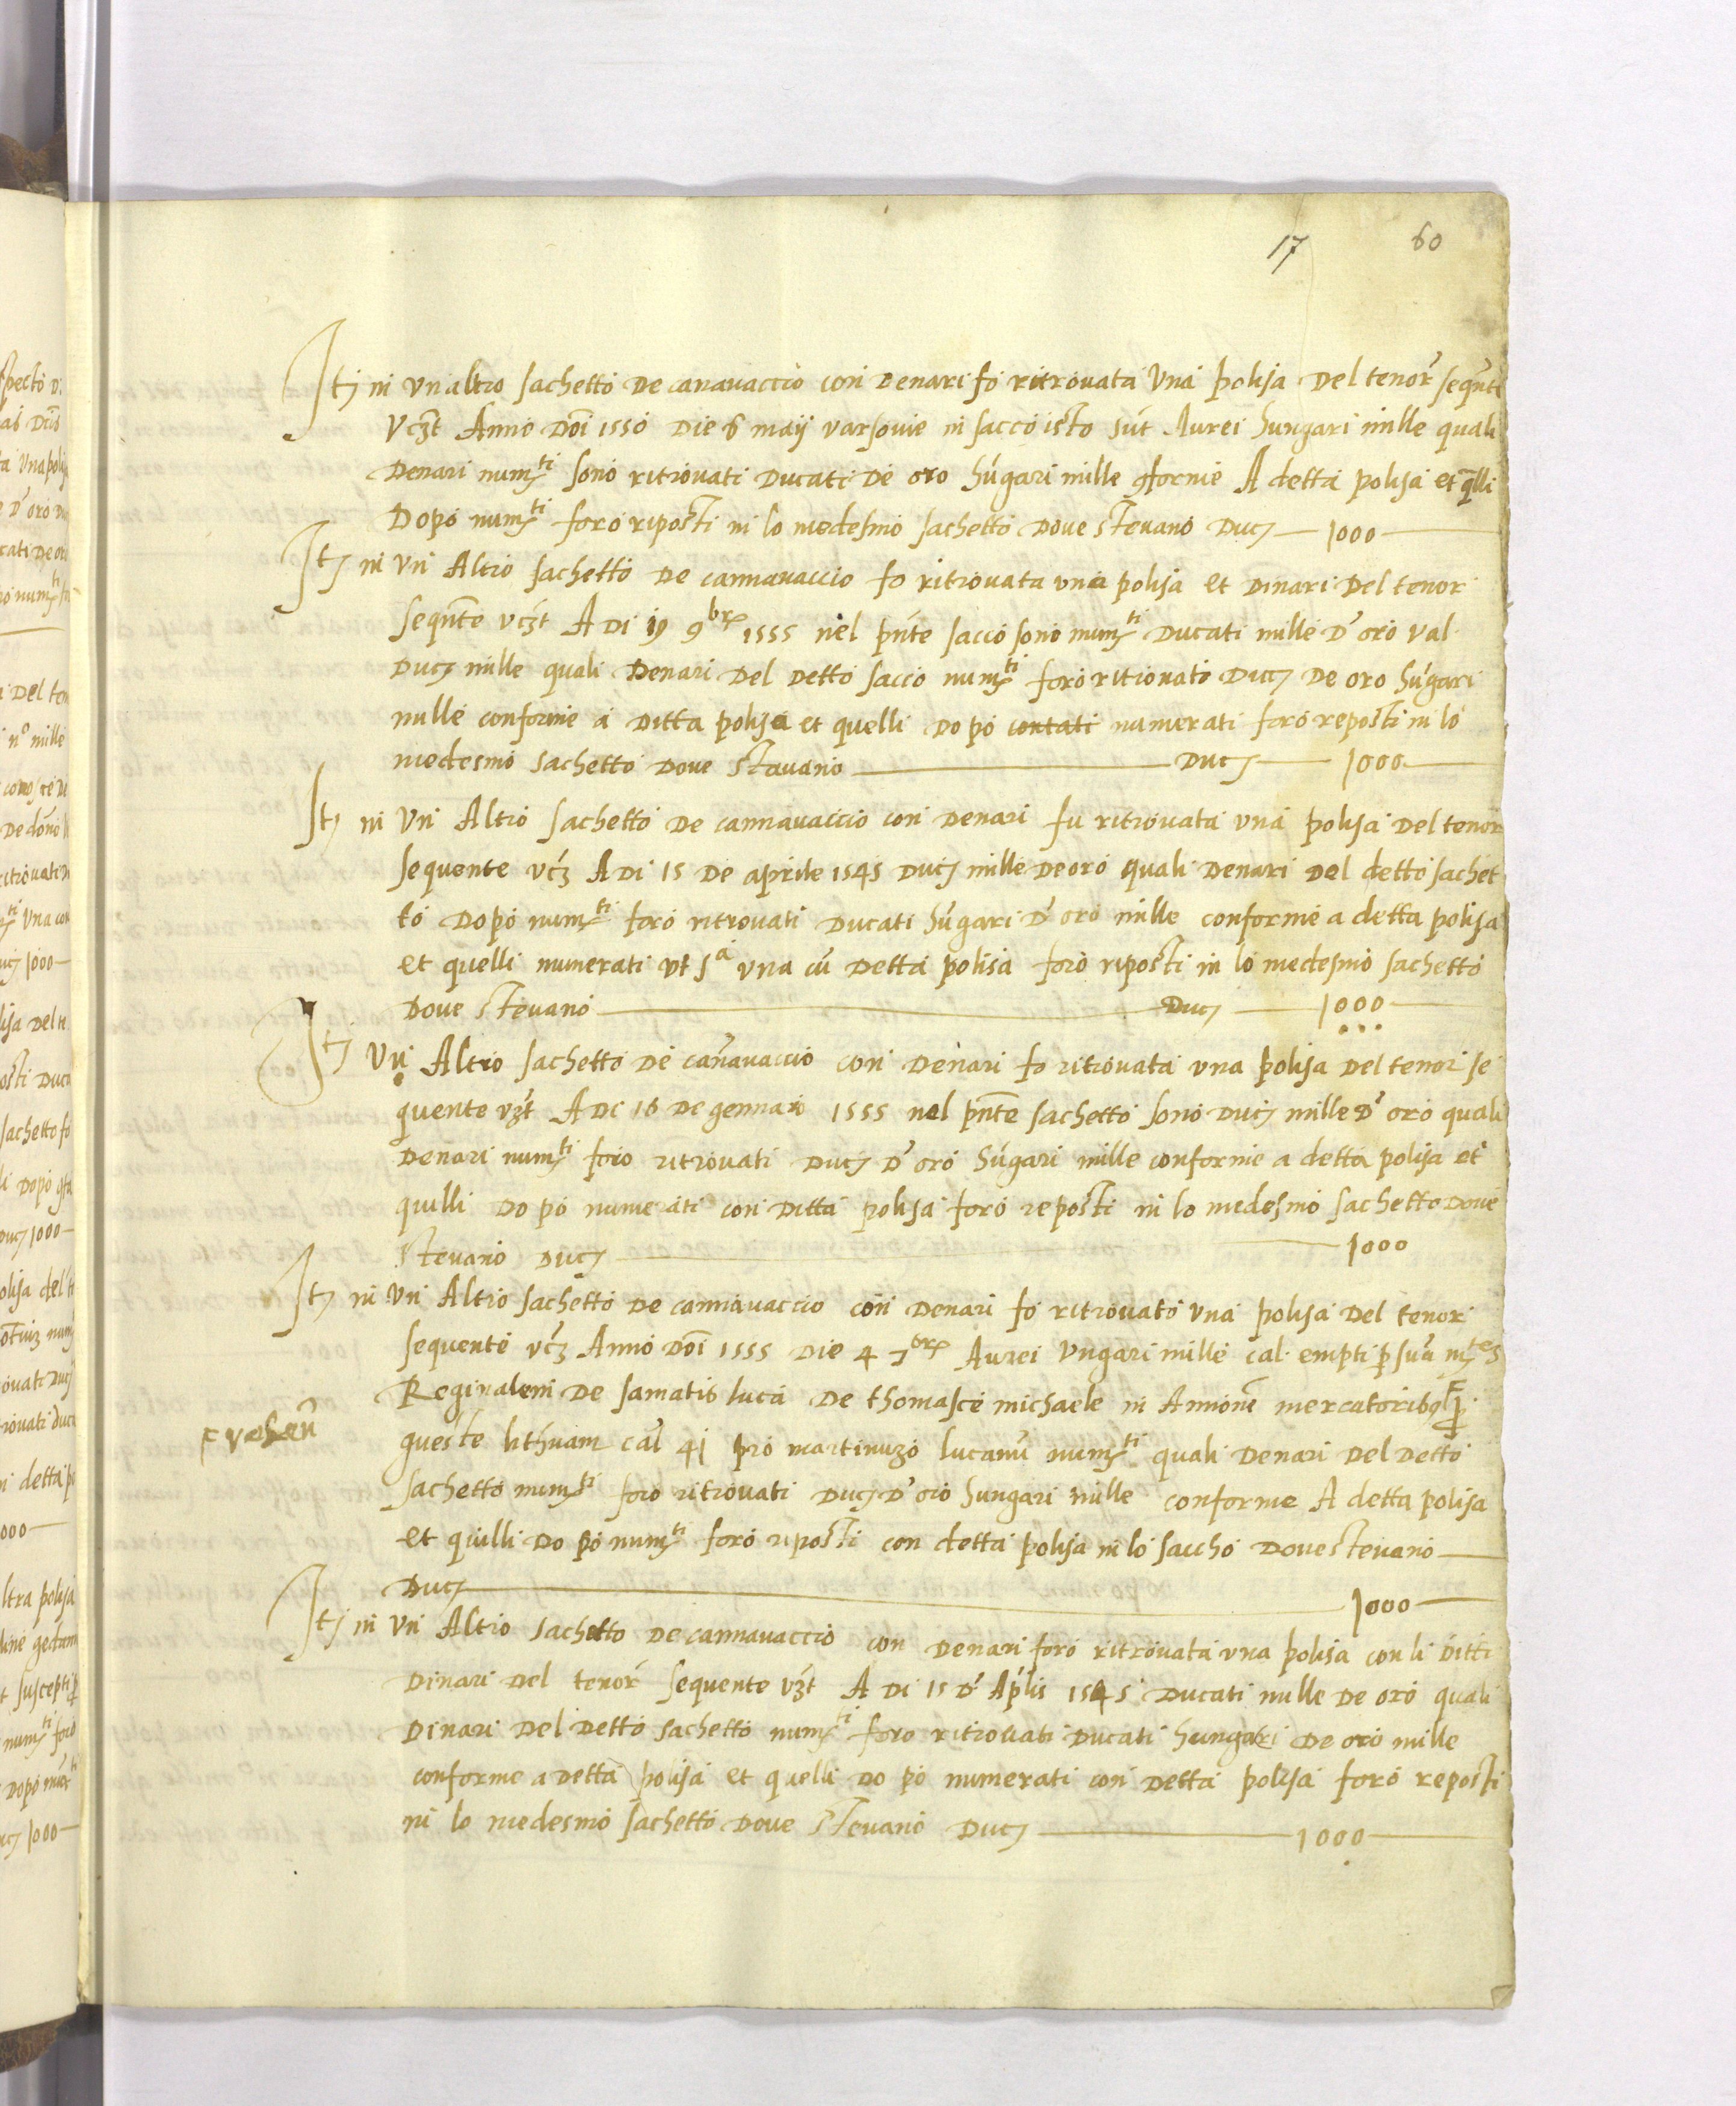 17 60
Itj in un altro sachetto de canavaccio con denari fo ritrovata una polisa del tenor seqnte
vczt Anno Doi 1550 die 6 maij varsovie in sacco isto sut Aurei hungari mille quali
denari numti sono ritrovati ducati de oro hugari mille cforme A detta polisa et qlli
Dopo numti foro riposti in lo medesmo sachetto dove stevano Ducj 1000
Itj in un Altro sachetto de cannavaccio fo ritrovata una polisa et dinari del tenor
seqnte vczt A di 19 9bre 1555 nel pnte sacco sono numti ducati mille d' oro val
ducj mille quali denari del detto sacco numti foro ritrovato ducj de oro hugari
mille conforme a ditta polisa et quelli dopo contati numerati foro reposti in lo
medesmo sachetto dove stavano Ducj 1000
Itj in un Altro sachetto de cannavaccio con denari fu ritrovata una polisa del tenor
sequente vcz A di 15 de aprile 1545 ducj mille de oro quali denari del detto sachet
to dopo numti foro ritrovati ducati hugari d' oro mille conforme a detta polisa
et quelli numerati ut sa una cu detta polisa foro riposti in lo medesmo sachetto
dove stevano Ducj 1000
Itj un Altro sachetto de canavaccio con denari fo ritrovata una polisa del tenor se
quente vzt A di 16 de gennaro 1555 nel pnte sachetto sono ducj mille d' oro quali
denari numti foro ritrovati ducj d' oro hugari mille conforme a detta polisa et
quilli dopo numerati con ditta polisa foro reposti in lo medesmo sachetto dove
stevano ducj 1000
Itj in un Altro sachetto de cannavaccio con denari fo ritrovato una polisa del tenor
sequente vcz Anno Doi 1555 die 4 7bre Aurei Ungari mille cal empti p sua mtes
Reginalem de samatis luca de thomasce michaele in mercatoribq
queste lithuam cal 41 pro martinuzo lucanu numti quali denari del detto
sachetto numti foro ritrovati ducj d' oro hungari mille conforme A detta polisa
et quilli dopo numti foro riposti con detta polisa in lo saccho dove stevano
Ducj 1000
Itj in un Altro sachetto de cannavaccio con denari foro ritrovata una polisa con li ditti
dinari del tenor sequente vzt A di 15 d' Aplis 1545 ducati mille de oro quali
dinari del detto sachetto numti foro ritrovati ducati hungari de oro mille
conforme a detta polisa et quelli dopo numerati con detta polisa foro reposti
in lo medesmo sachetto dove stevano Ducj 1000